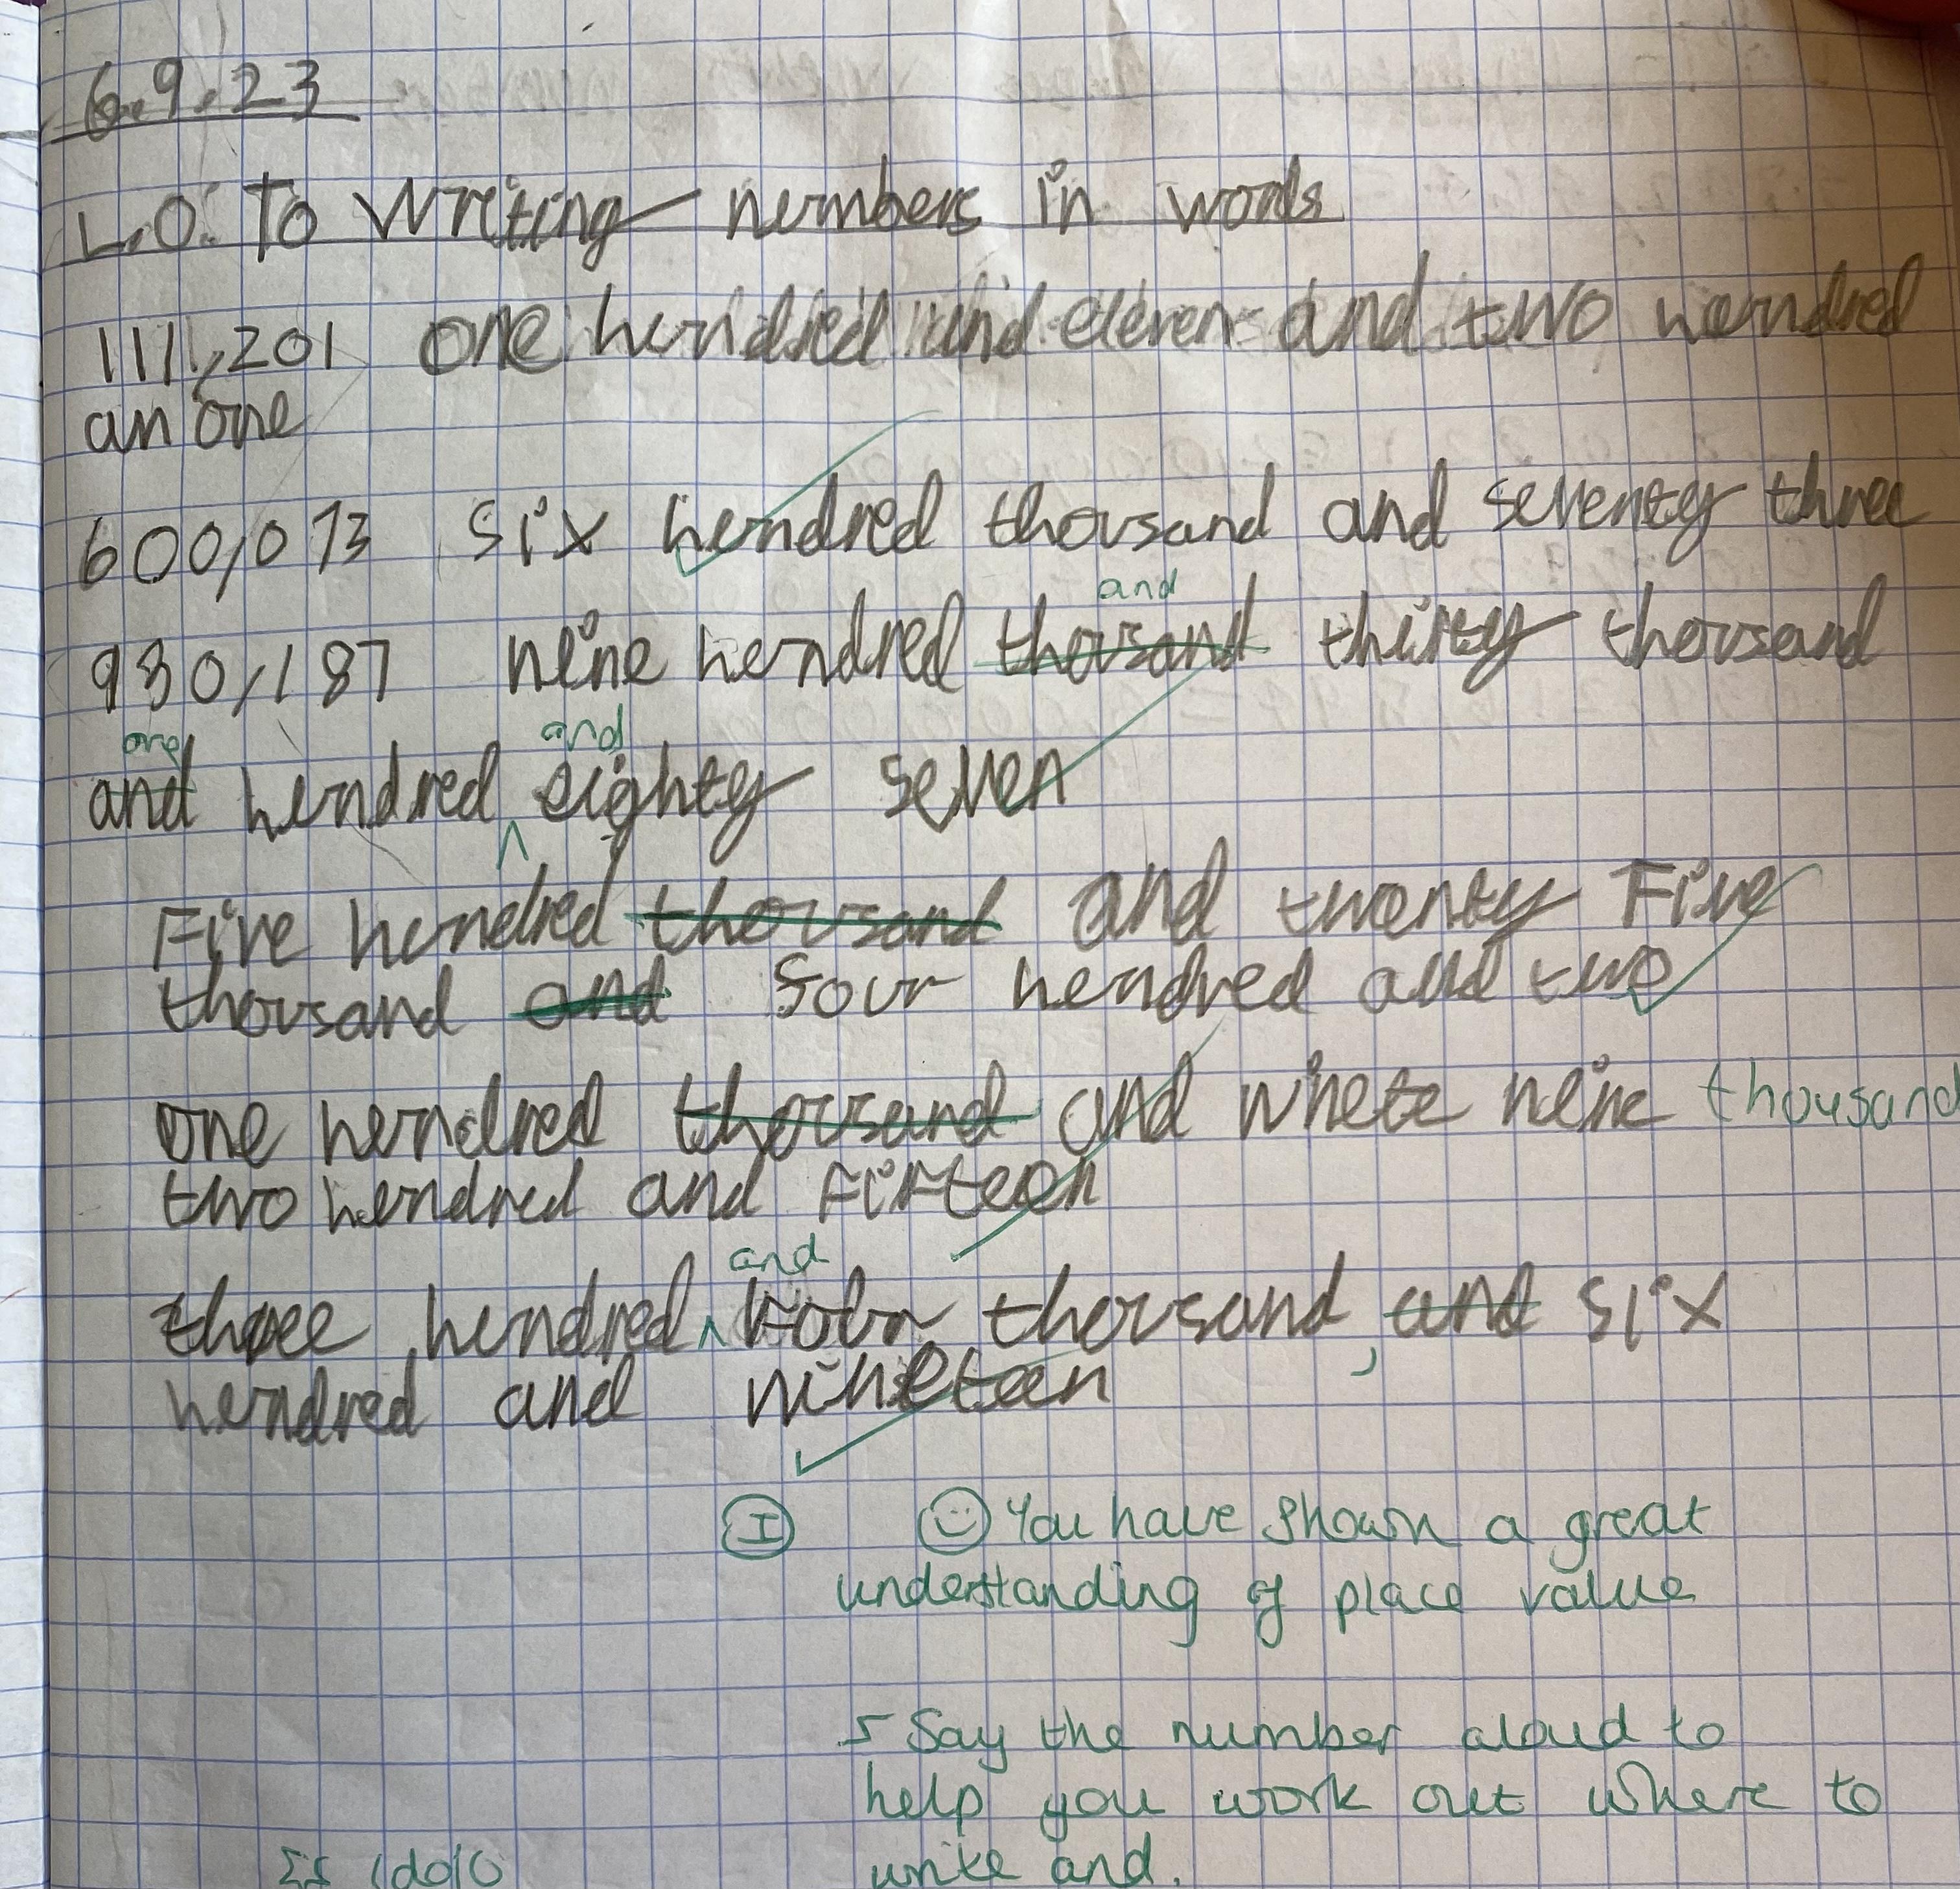 6.9.23
L.O: To Writing numbers in words
111,201 one hundred and eleven and two hundred
an one
600,073 six hundred thousand and seventy three
and
930,187 nine hundred thousand thirty thousand
one and
and hundred eighty seven
Five hundred thousand and twenty Five
thousand and four hundred and two
one hundred thousand and ninete nine thousand
two hundred and FiFteen
and
three hundred four thousand, and six
hundred and nineteen
I You have shown a great
understanding of place value
Say the number aloud to
help you work out where to
write and.